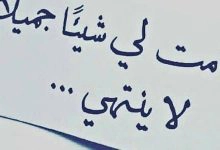 مت لي شيئًا جميلا
لا ينتهي ...